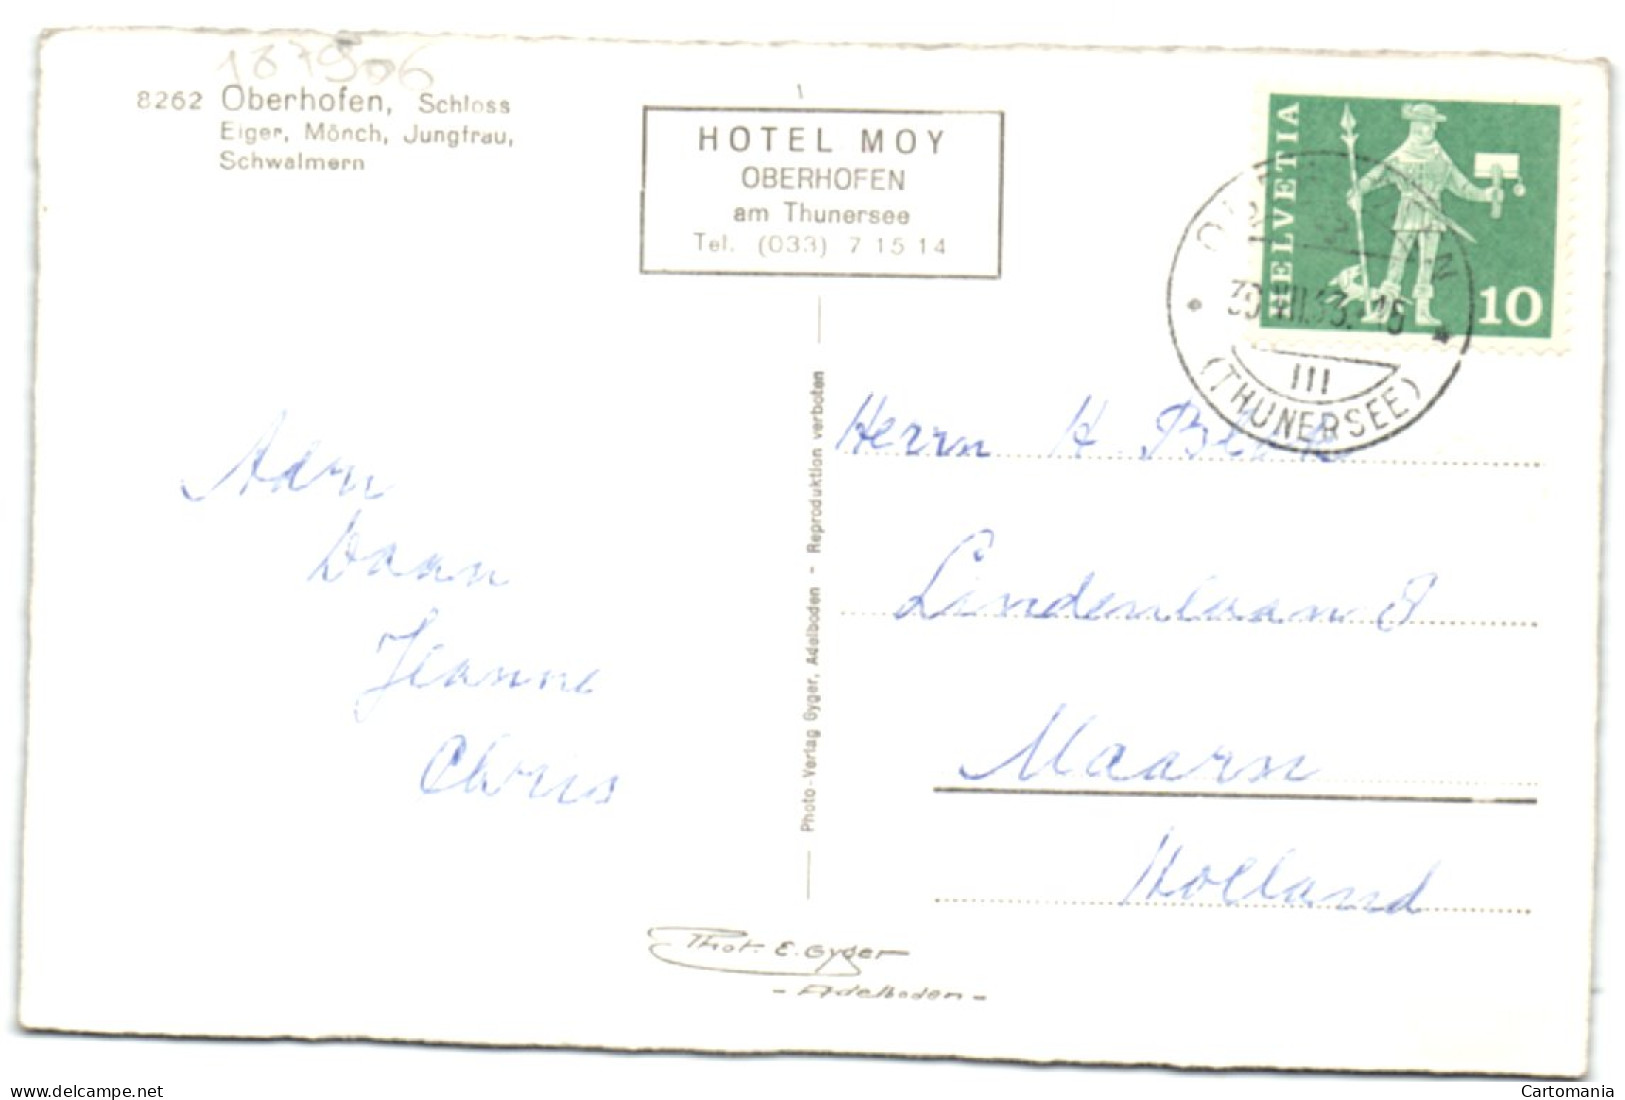 187906
8262 Oberhofen, Schloss
Eiger, Mönch, Jungfrau,
Schwalmern
HOTEL MOY
OBERHOFEN
am Thunersee
Tel. (033) 7 15 14
HELVETIA
10
III
(THUNERSEE)
Photo-Verlag Gyger, Adelboden - Reproduktion verboten
Herrn H.
Lindenlaan 8
Maarn
Holland
Daan
Jeanne
Chris
Phot. E. Gyger
- Adelboden -
delcampe.net
Cartomania